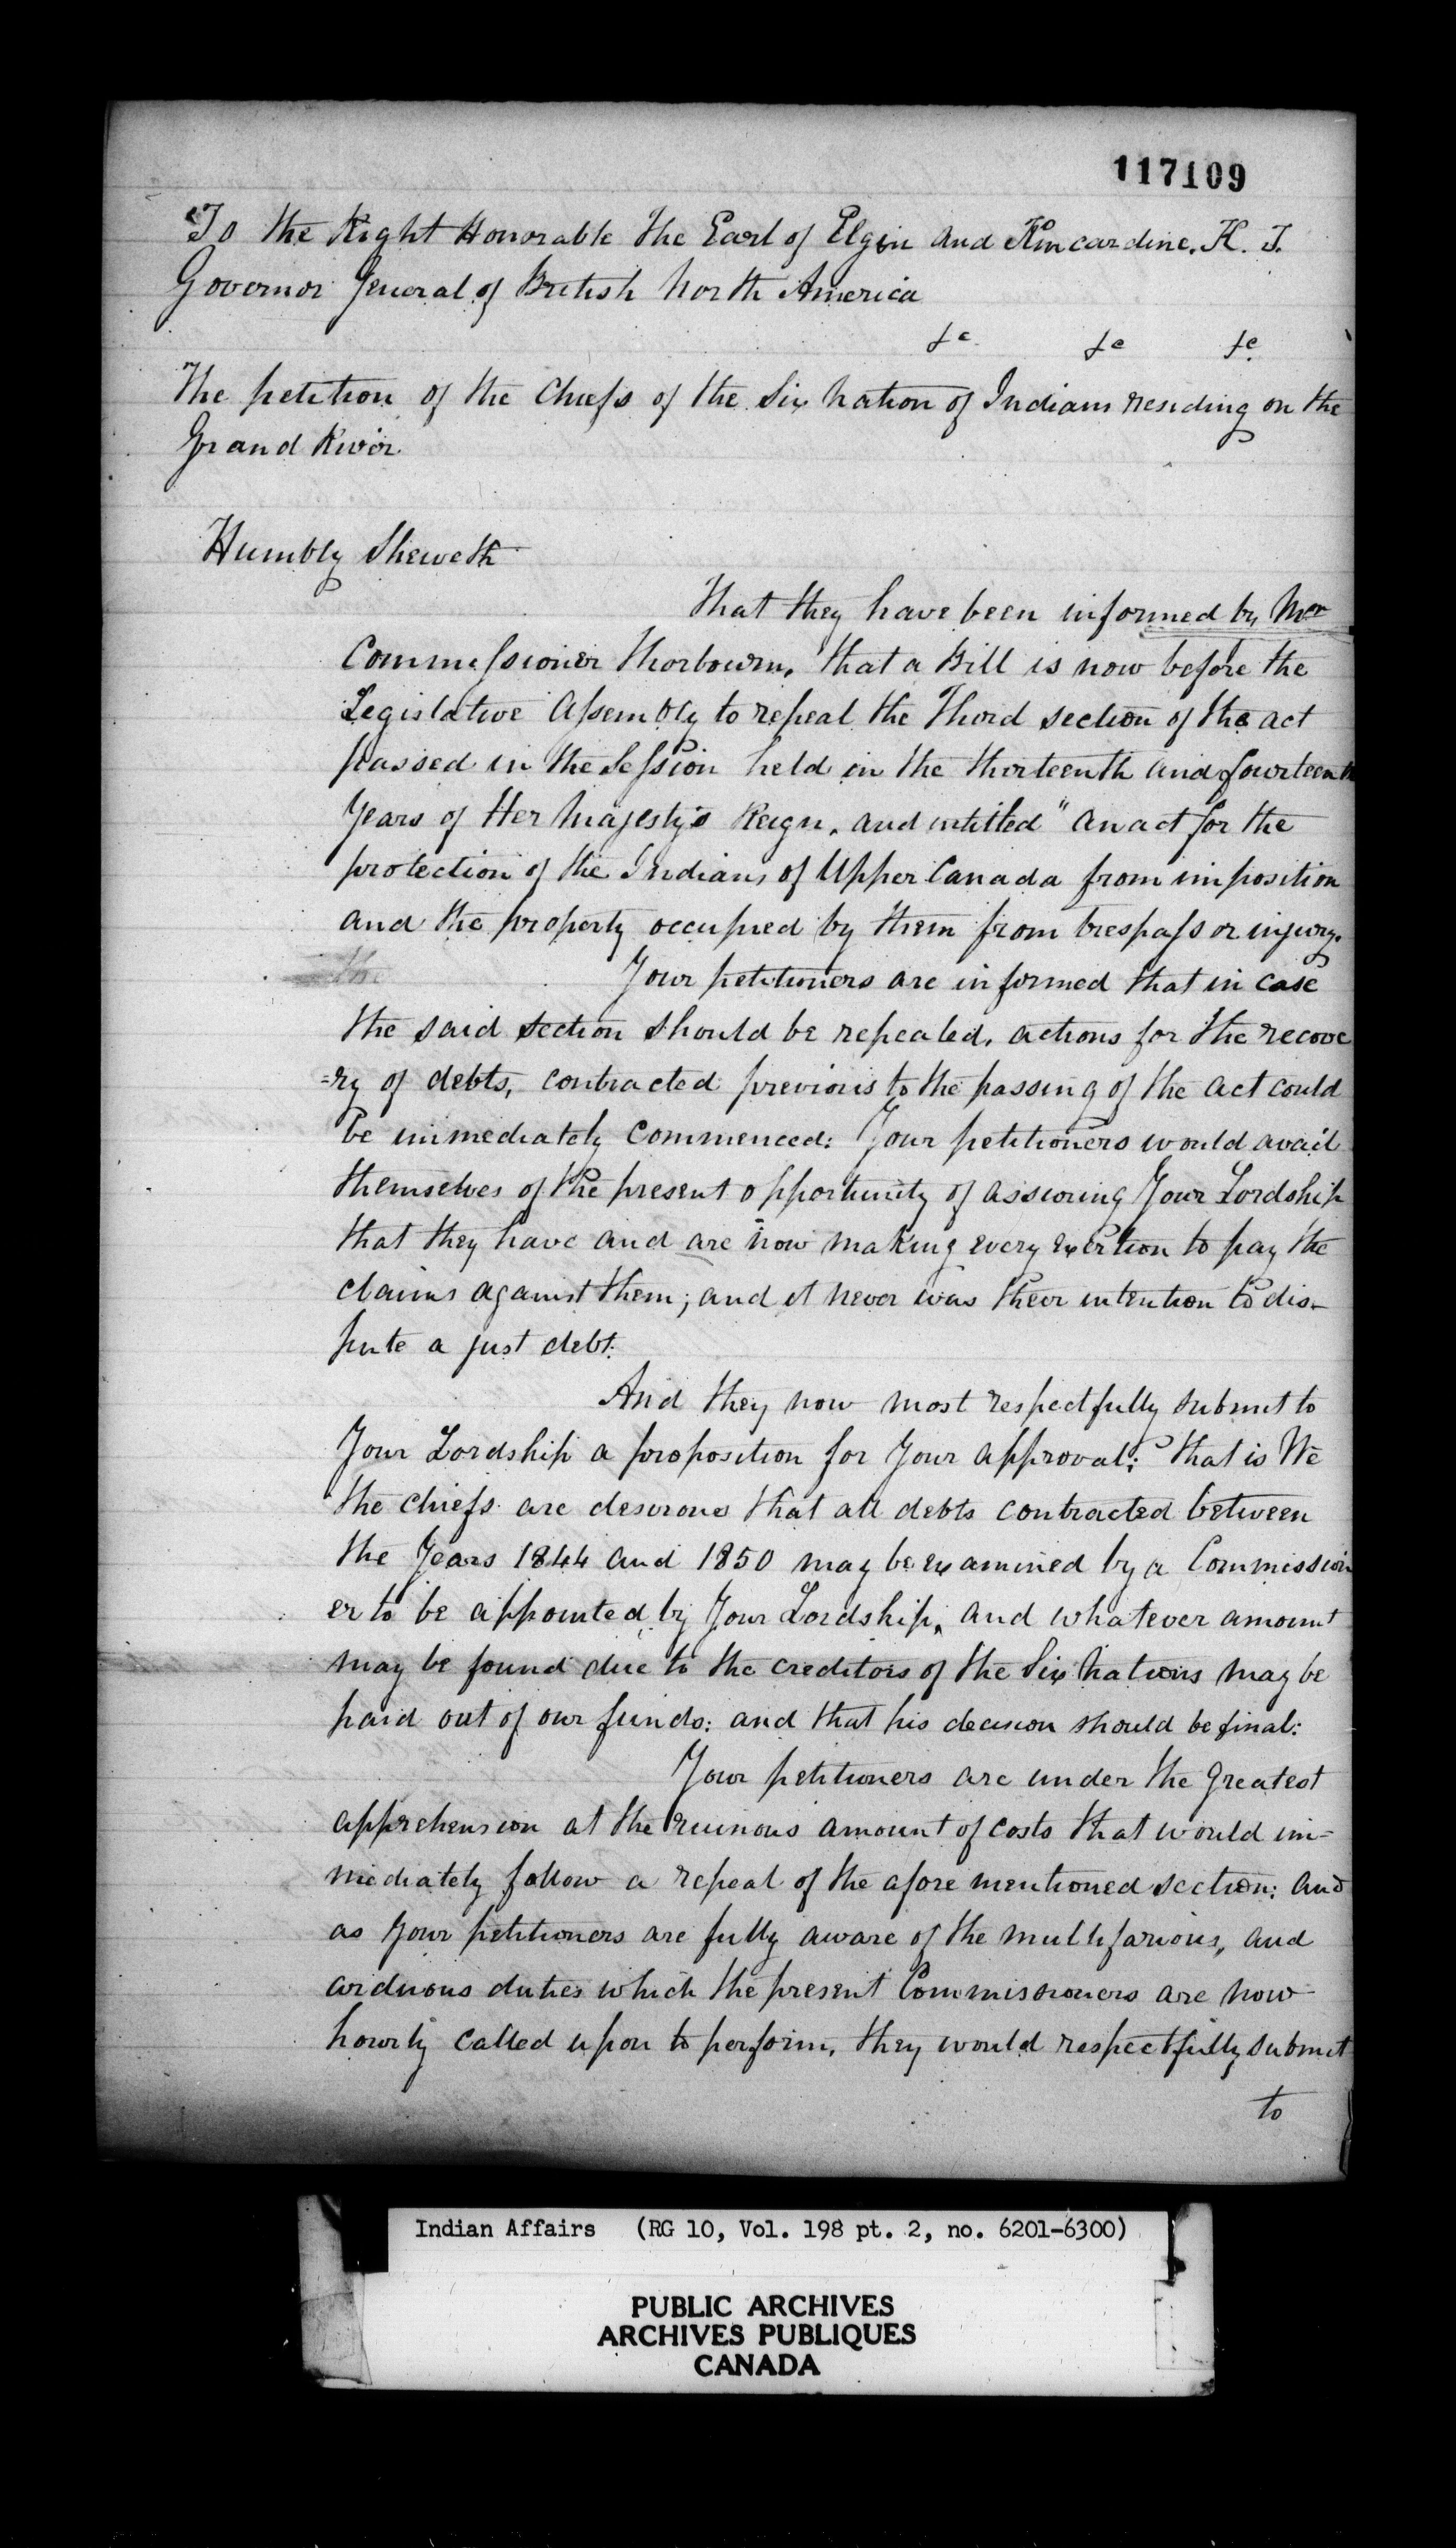 117109
To the Right Honorable the Earl of Elgin and Kincardine. K. T.
Governor General of British North America
&c. &c &c.
The petition of the Chiefs of the Six Nation of Indians residing on the
Grand River.
Humbly Sheweth
That they have been informed by Mr
Commissioner Thorbourn, that a Bill is now before the
Legislative Assembly to repeal the Third section of the act
passed in the Session held in the thirteenth and fourteenth
Years of Her Majesty's Reign, and intitled "an act for the
protection of the Indians of Upper Canada from imposition
and the property occupied by them from trespass or injury.
the Your petitioners are informed that in case
the said section should be repealed, actions for the recove
=ry of debts, contracted previous to the passing of the act could
be immediately commenced: Your petitioners would avail
themselves of the present opportunity of assuring Your Lordship
that they have and are now making every exertion to pay the
claims against them; and it never was their intention to dis-
pute a just debt.
And they now most respectfully submit to
Your Lordship a proposition for Your approval; that is We
the chiefs are desirous that all debts contracted between
the Years 1844 and 1850 may be examined by a Commission
er to be appointed by Your Lordship, and whatever amount
may be found due to the creditors of the Six Nations may be
paid out of our funds: and that his decision should be final:
Your petitioners are under the greatest
apprehension at the ruinous amount of costs that would im-
mediately follow a repeal of the afore mentioned section: and
as Your petitioners are fully aware of the multifarious, and
arduous duties which the present Commissioners are now
hourly called upon to perform, they would respectfully submit
to
Indian Affairs (RG 10, Vol. 198 pt. 2, no. 6201-6300)
PUBLIC ARCHIVES
ARCHIVES PUBLIQUES
CANADA